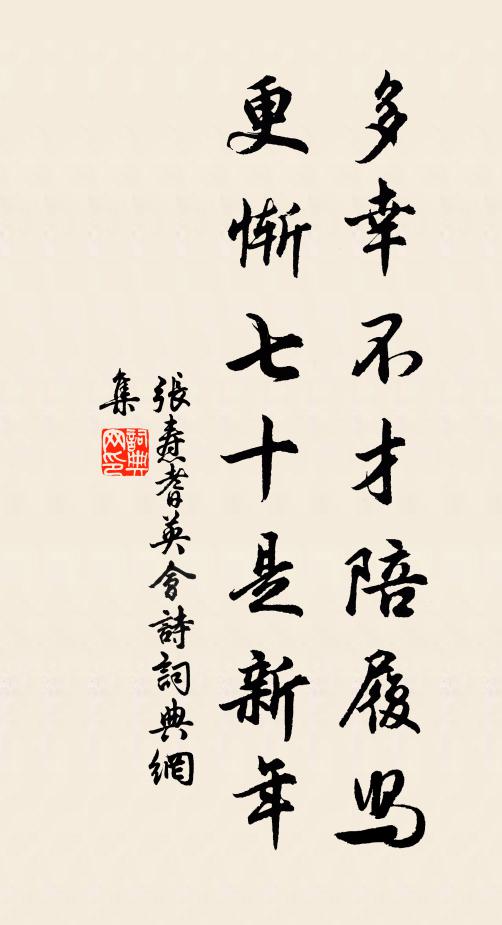 多幸不才陪履舄
更慚七十是新年
張燾耆英會詩詞典網
集
詞典
网印